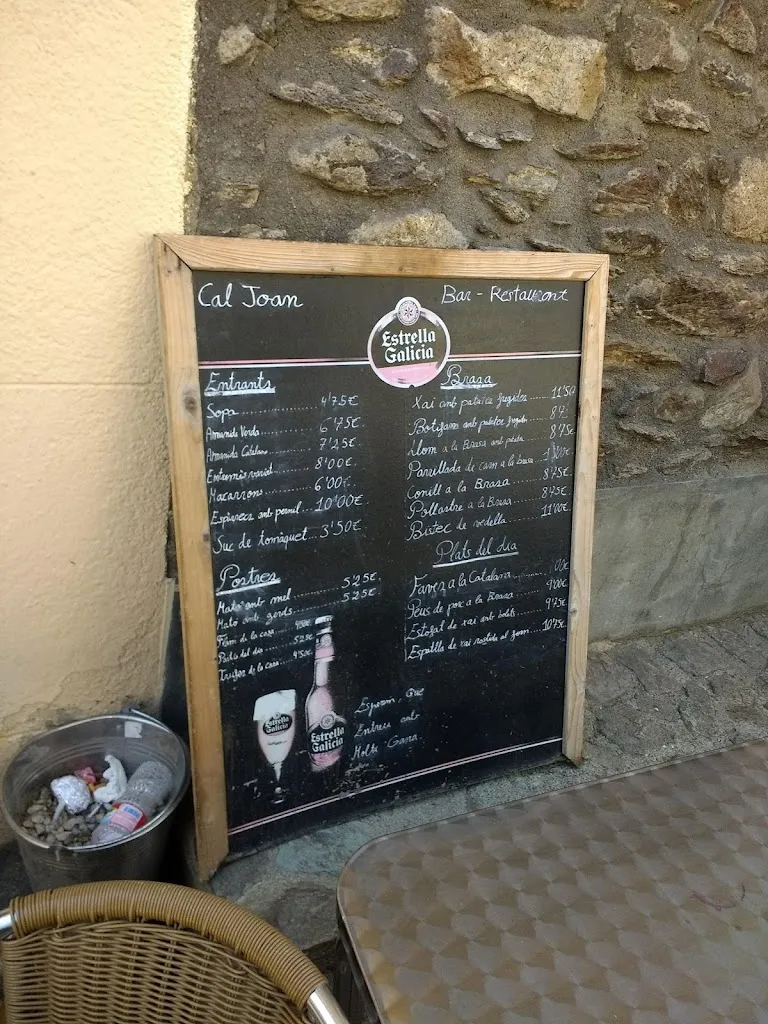 Cal Joan
Bar - Restaurant
Estrella
Galicia
Entrants
Sopa 4'75€
Amanida Verda 6'75€
Amanida Catalana 7'25€
Entremès variat 8'00€
Macarrons 6'00€
Espàrrecs amb pernil 10'00€
Suc de tomàquet 3'50€
Postres
Mató amb mel 5'25€
Mató amb gerds 5'25€
de la casa
del dia 5'25€
Trufes de la casa 4'50€
Brasa
Xai amb patates fregides 11'50
Botifarra amb patates fregides
Llom a la Brasa amb patata 8'75€
Parrillada de carn a la brasa
Conill a la Brasa 8'75€
Pollastre a la Brasa 8'75€
Bistec de vedella 11'00€
Plats del dia
Faves a la Catalana
Peus de porc a la Brasa 9'00€
Estofat de xai amb bolets 9'75€
Espatlla de xai rostida al forn 10'75€
Estrella
Galicia
Estrella
Galicia
Esperem que
Entreu amb
Molta Gana